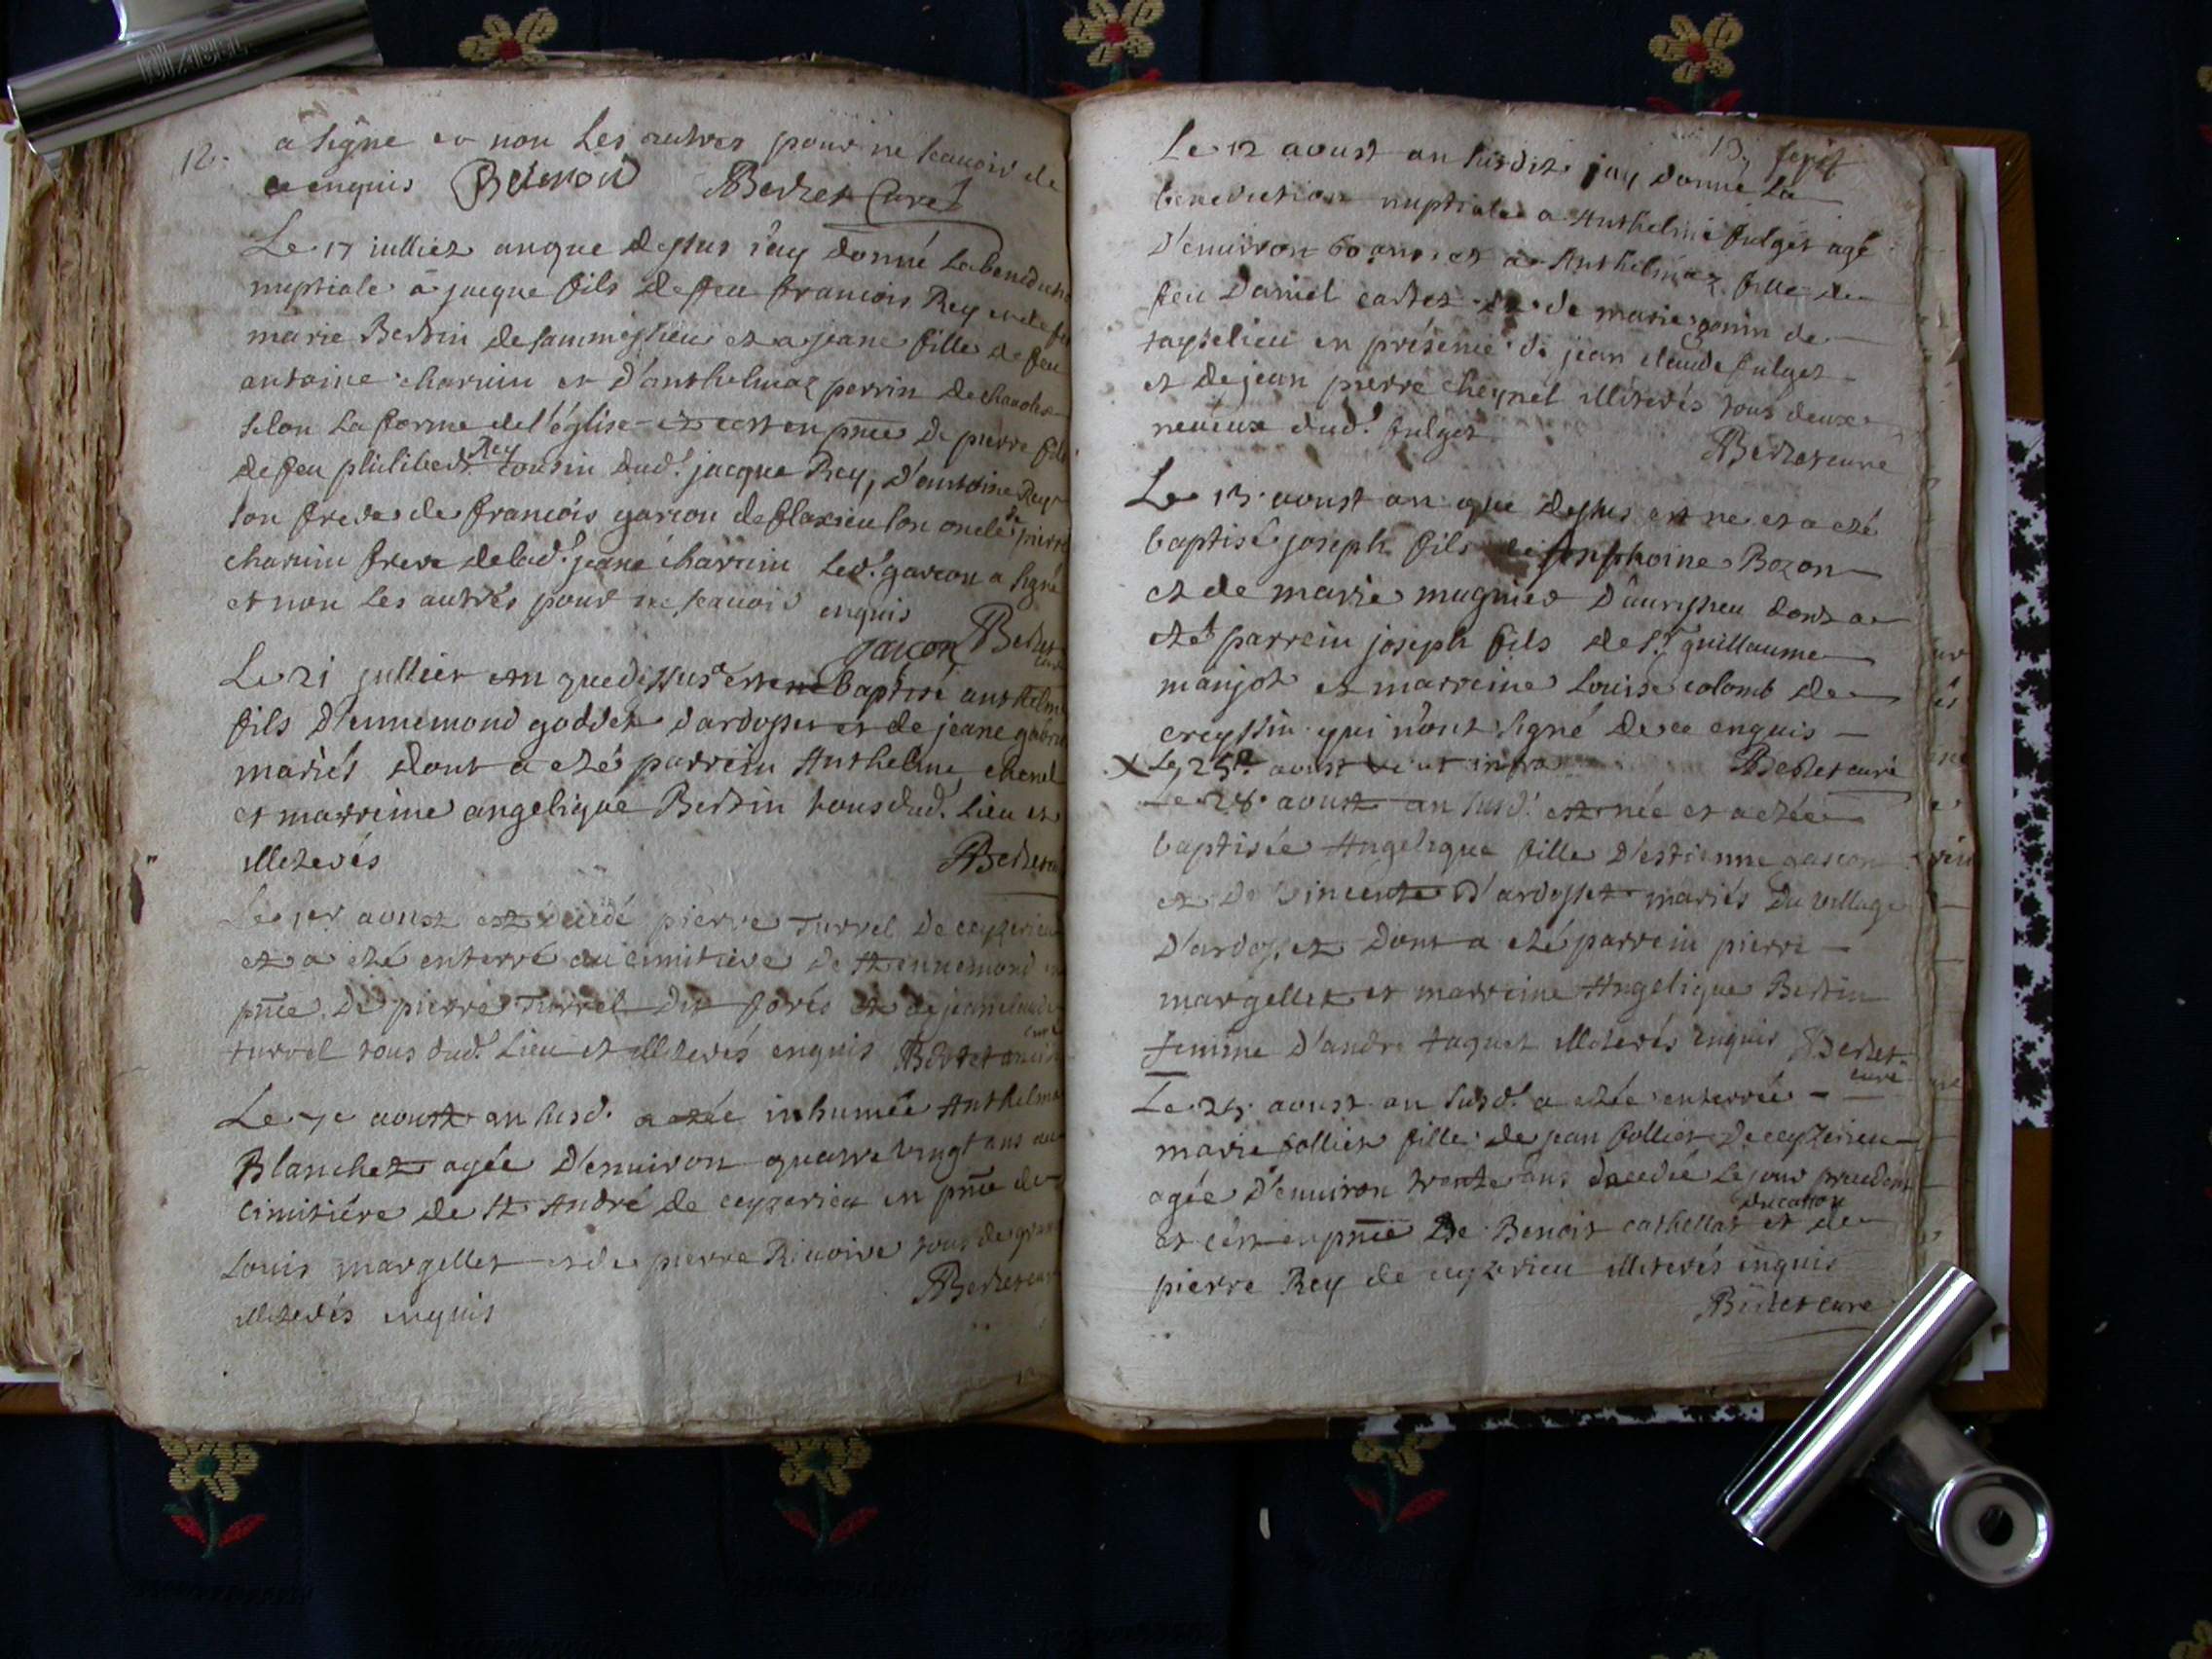 12.
a signé et non les autres pour ne scauoir de
ce enquis Belmond Berlet Curé
Le 17 julliet an que dessus j'ay donné la benedictio
nuptiale a jacque fils de feu francois Rey et de feu
marie Bertin de sammessieu et a jeane fille de feu
antoine charuin et d'anthelmaz perrin de
selon la forme de l'église et cest en pñce de pierre fils
de feu philibert Rey cousin dud.t jacque Rey, d'antoine Rey
son frere de francois garcon de flaxieu son oncle de pierre
charuin frere de lad.t jeane charuin led.t garcon a signé
et non les autrés pour ne scauoir enquis
garcon Berlet curé
Le 21 julliet an que dessus est né baptisé anthelme
fils d'ennemond goddet d'ardosset et de jeane
mariés dont a eté parrein Anthelme chenel
et marreine angelique Bertin tous dud.t Lieu et
illiterés Berlet curé
Le 1er aoust est decedé pierre Turrel de ceyzerieu
et a eté enterré au cimitiere de St ennemond en
pñce de pierre Turrel dit forés et de jean claude
turrel tous dud.t Lieu et illiterés enquis Berlet curé
Le 7e aoust an susd.t a etée inhumée Anthelme
Blanchet agée d'enuiron quatre vingt ans au
cimitiére de St André de ceyzerieu en pñce de
Louis margellet et de pierre Riuoire tous de
illiterés enquis Berlet curé
13.
Le 12 aoust an susdit jay donné La
benediction nuptiale a Anthelme fulget agé
d'enuiron 60 ans et a Anthelmaz fille de
feu Daniel cartet et de marie gonin de
taysilieu en présence de jean claude fulget
et de jean pierre cheynel illiterés tous deux
neueux dud.t fulget
Berlet curé
Le 13 aoust an que dessus est né et a eté
baptisé joseph fils de Bozon
et de marie mugnier d'auryssieu dont a
eté parrein joseph fils de Sr guillaume
manjot et marreine Louise colomb de
creyssin qui n'ont signé de ce enquis
X Le 25e aoust ut infra Berlet curé
Le 28 aoust an susd.t est née et a etée
baptisée Angelique fille d'estienne gascon
et de vincente d'ardosset mariés du village
d'ardosset dont a eté parrein pierre
margellet et marreine Angelique Bertin
femme d'andre taquet illiterés enquis Berlet
curé
Le 25 aoust an susd.t a etée enterrée
marie follier fille de jean follier de ceyzerieu
agée d'enuiron trente ans decedée Le jour precedent
et cest en pñce de Benoit cathellat ducatton et de
pierre Rey de ceyzerieu illiterés enquis
Berlet curé